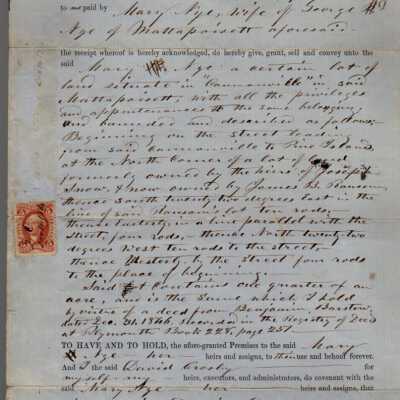 to me paid by Mary Nye, wife of George
Nye of Mattapoisett aforesaid
the receipt whereof is hereby acknowledged, do hereby give, grant, sell and convey unto the
said Mary Nye a certain lot of
land situate in "Cannonville" in said
Mattapoisett, with all the privileges
and appurtenances to the same belonging,
and bounded and described as follows:
Beginning on the street leading
from said Cannonville to Pine Island,
at the North Corner of a lot of land
formerly owned by the heirs of Joseph
Snow, & now owned by James B. Ransom
thence South twenty two degrees East in the
line of said Ransom's lot ten rods,
thence Easterly in a line parallel with the
street, four rods, thence North twenty two
degrees West ten rods to the street,
thence Westerly by the street four rods
to the place of beginning.
Said lot contains one quarter of an
acre, and is the same which I hold
by virtue of a deed from Benjamin Barstow
dated Dec. 31. 1846, recorded in the Registry of Deeds
at Plymouth, Book 228, page 251
TO HAVE AND TO HOLD, the afore-granted Premises to the said Mary
Nye her heirs and assigns, to their use and behoof forever.
And I the said David Crosby for
myself my heirs, executors, and administrators, do covenant with the
said Mary Nye her heirs and assigns, that